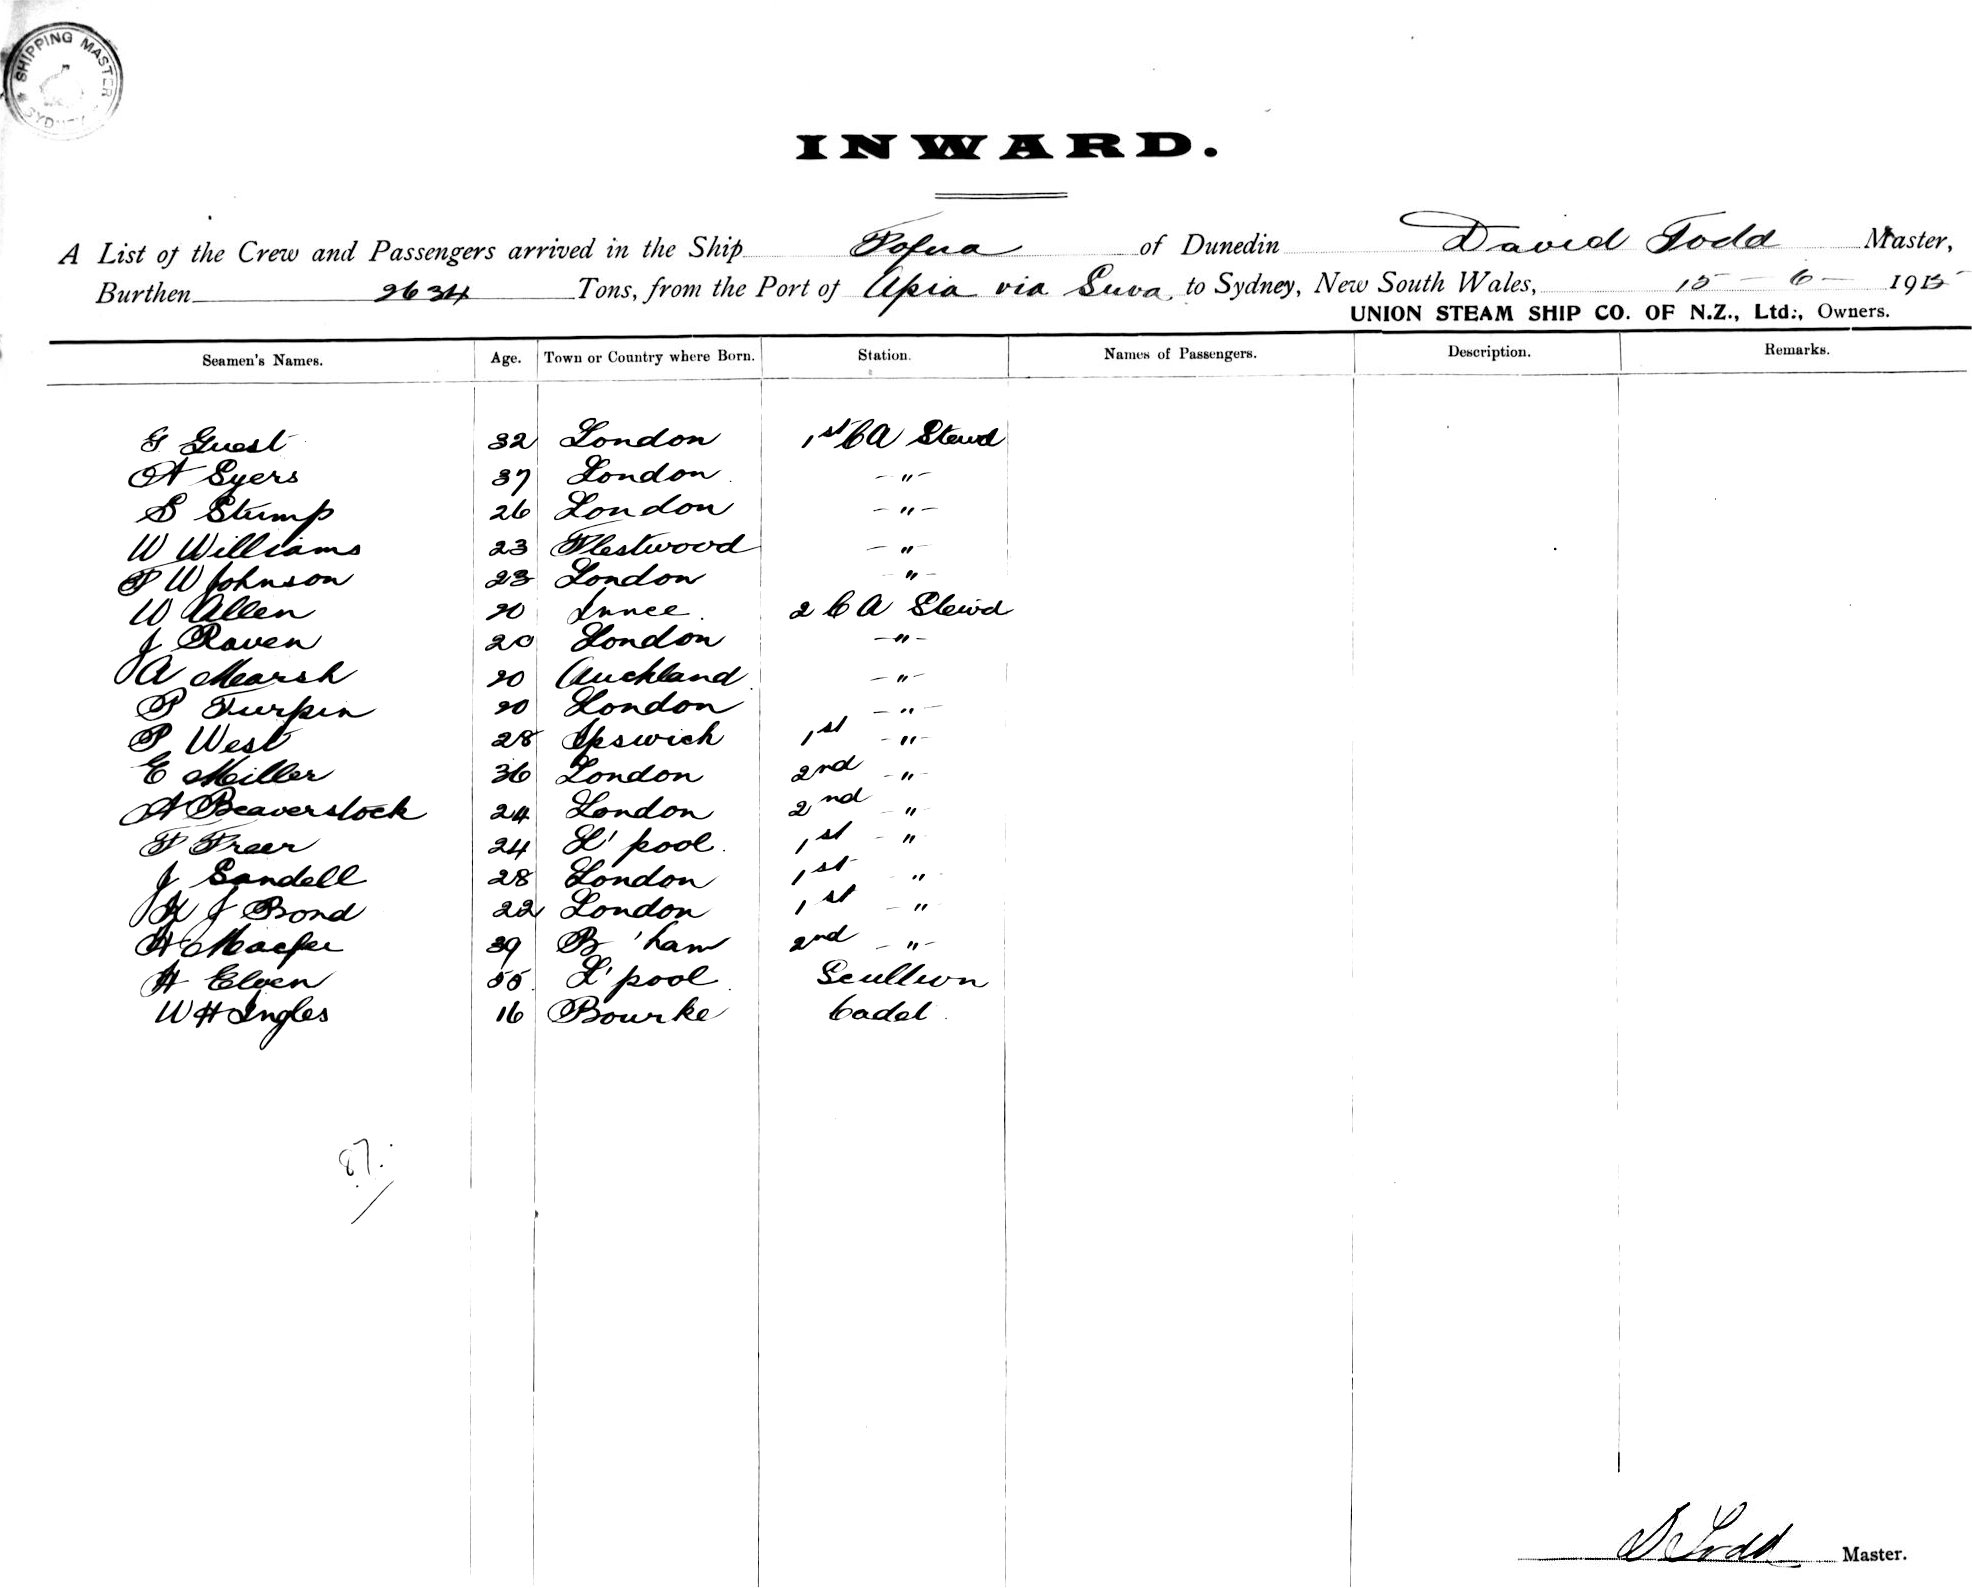 SHIPPING MASTER
SYDNEY
INWARD.
A List of the Crew and Passengers arrived in the Ship Tofua of Dunedin David Todd Master,
Burthen 2634 Tons, from the Port of Apia via Suva to Sydney, New South Wales, 15 - 6 - 1915
UNION STEAM SHIP CO. OF N.Z., Ltd., Owners.
Seamen's Names. Age. Town or Country where Born. Station. Names of Passengers. Description. Remarks.
G Guest 32 London 1st C A Stewd
A Syers 37 London - " -
S Stump 26 London - " -
W Williams 23 Fleetwood - "
P W Johnson 23 London " -
W Allen 20 2 C A Stewd
J Raven 20 London - " -
A Marsh 20 Auckland - " -
P Turpin 20 London - " -
P West 28 Ipswich 1st - " -
E Miller 36 London 2nd - " -
A Beaverstock 24 London 2nd - " -
F Freer 24 L'pool 1st - " -
J Sandell 28 London 1st - "
H J Bond 22 London 1st - " -
H Macfee 39 B'ham 2nd - " -
H Elven 55 L'pool Scullion
W H Ingles 16 Bourke Cadet
87.
D Todd Master.